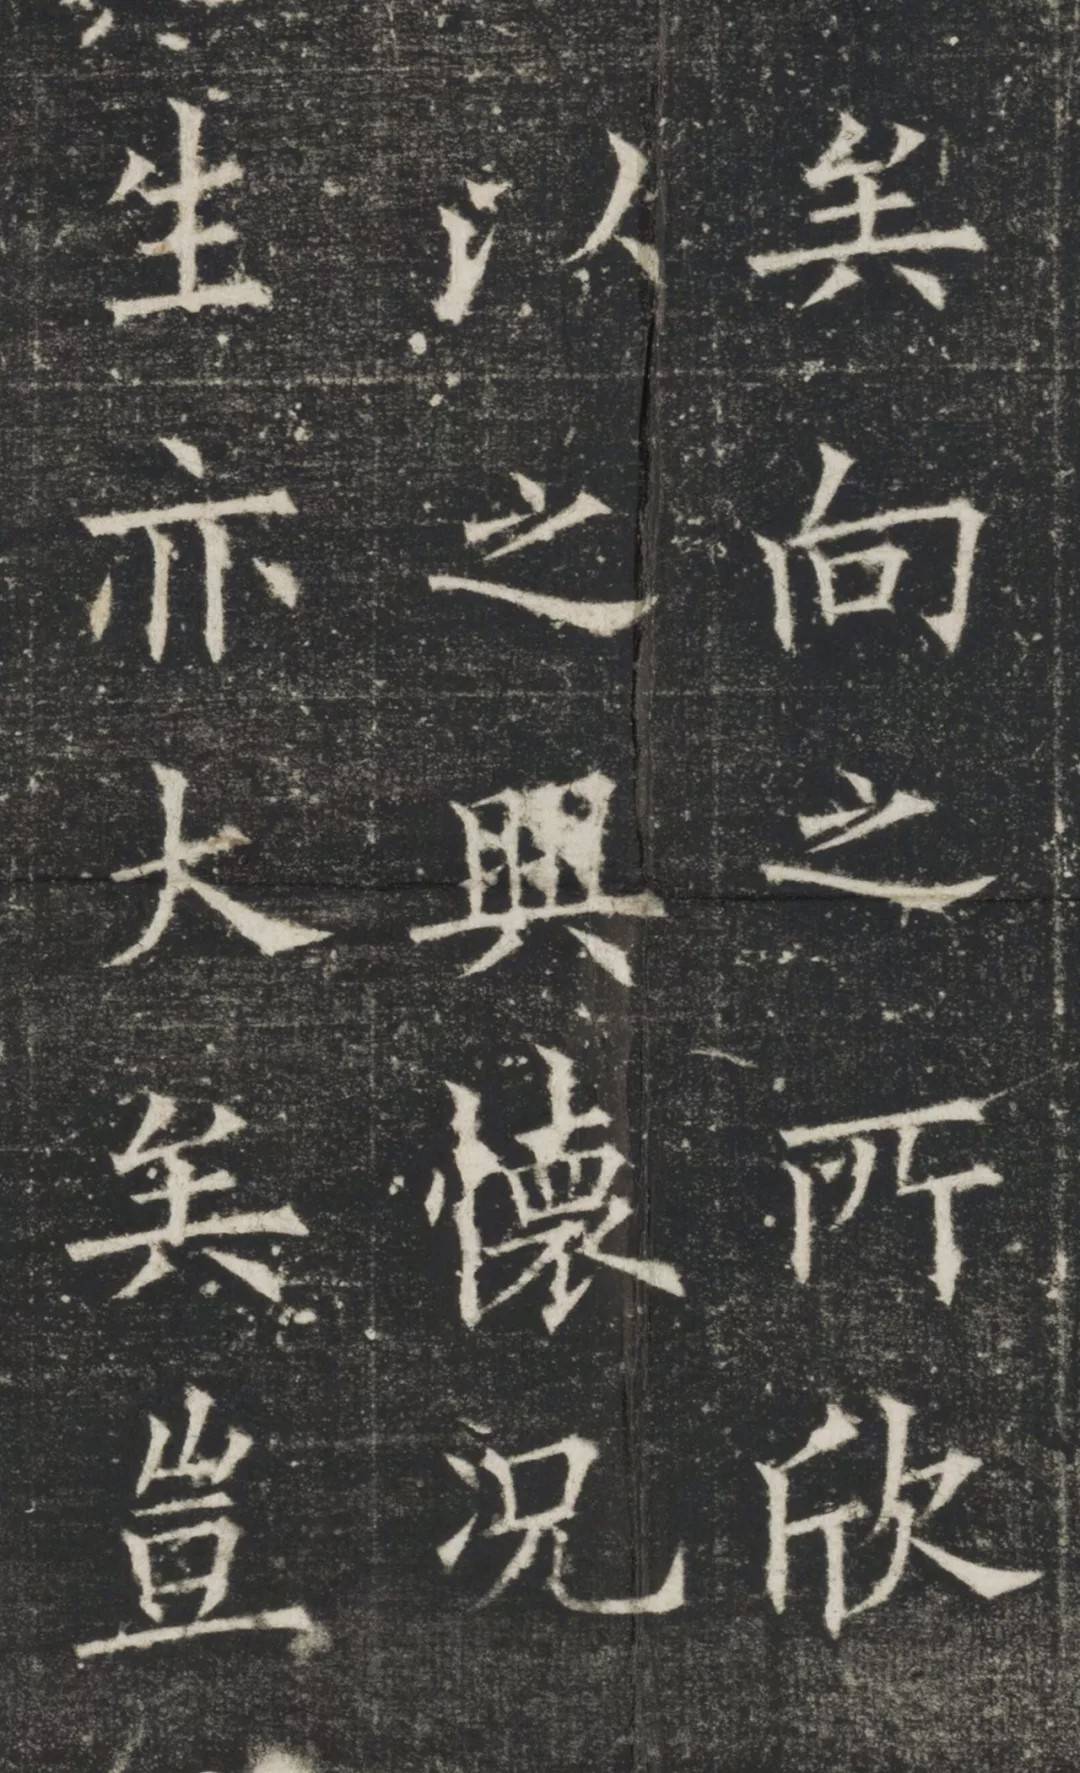 矣向之所欣
以之興懷況
生亦大矣豈